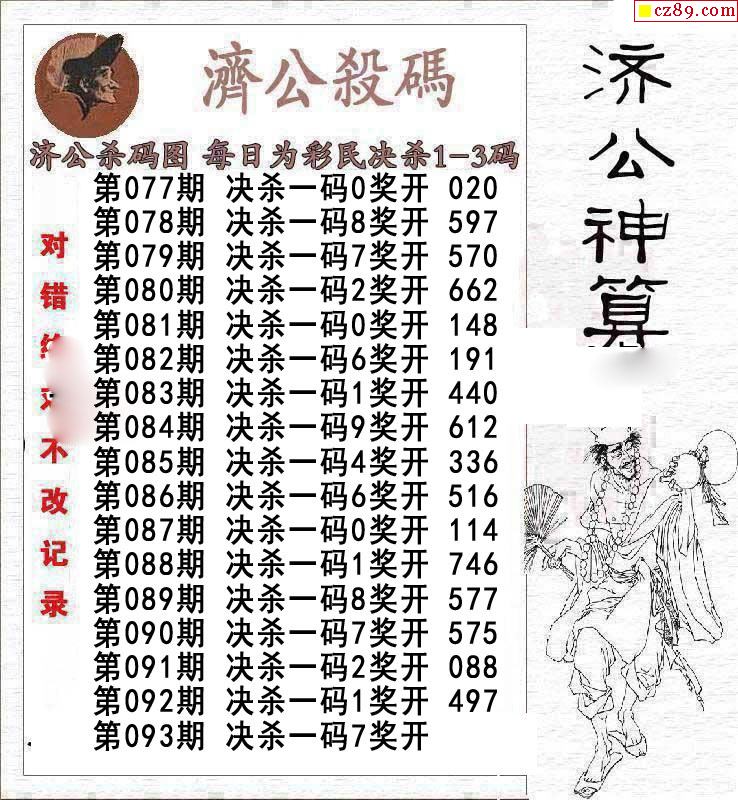 cz89.com
濟公殺碼
济公杀码图 每日为彩民决杀1-3码
第077期 决杀一码0奖开 020
第078期 决杀一码8奖开 597
第079期 决杀一码7奖开 570
第080期 决杀一码2奖开 662
第081期 决杀一码0奖开 148
第082期 决杀一码6奖开 191
第083期 决杀一码1奖开 440
第084期 决杀一码9奖开 612
第085期 决杀一码4奖开 336
第086期 决杀一码6奖开 516
第087期 决杀一码0奖开 114
第088期 决杀一码1奖开 746
第089期 决杀一码8奖开 577
第090期 决杀一码7奖开 575
第091期 决杀一码2奖开 088
第092期 决杀一码1奖开 497
第093期 决杀一码7奖开
对错不改记录
济公神算